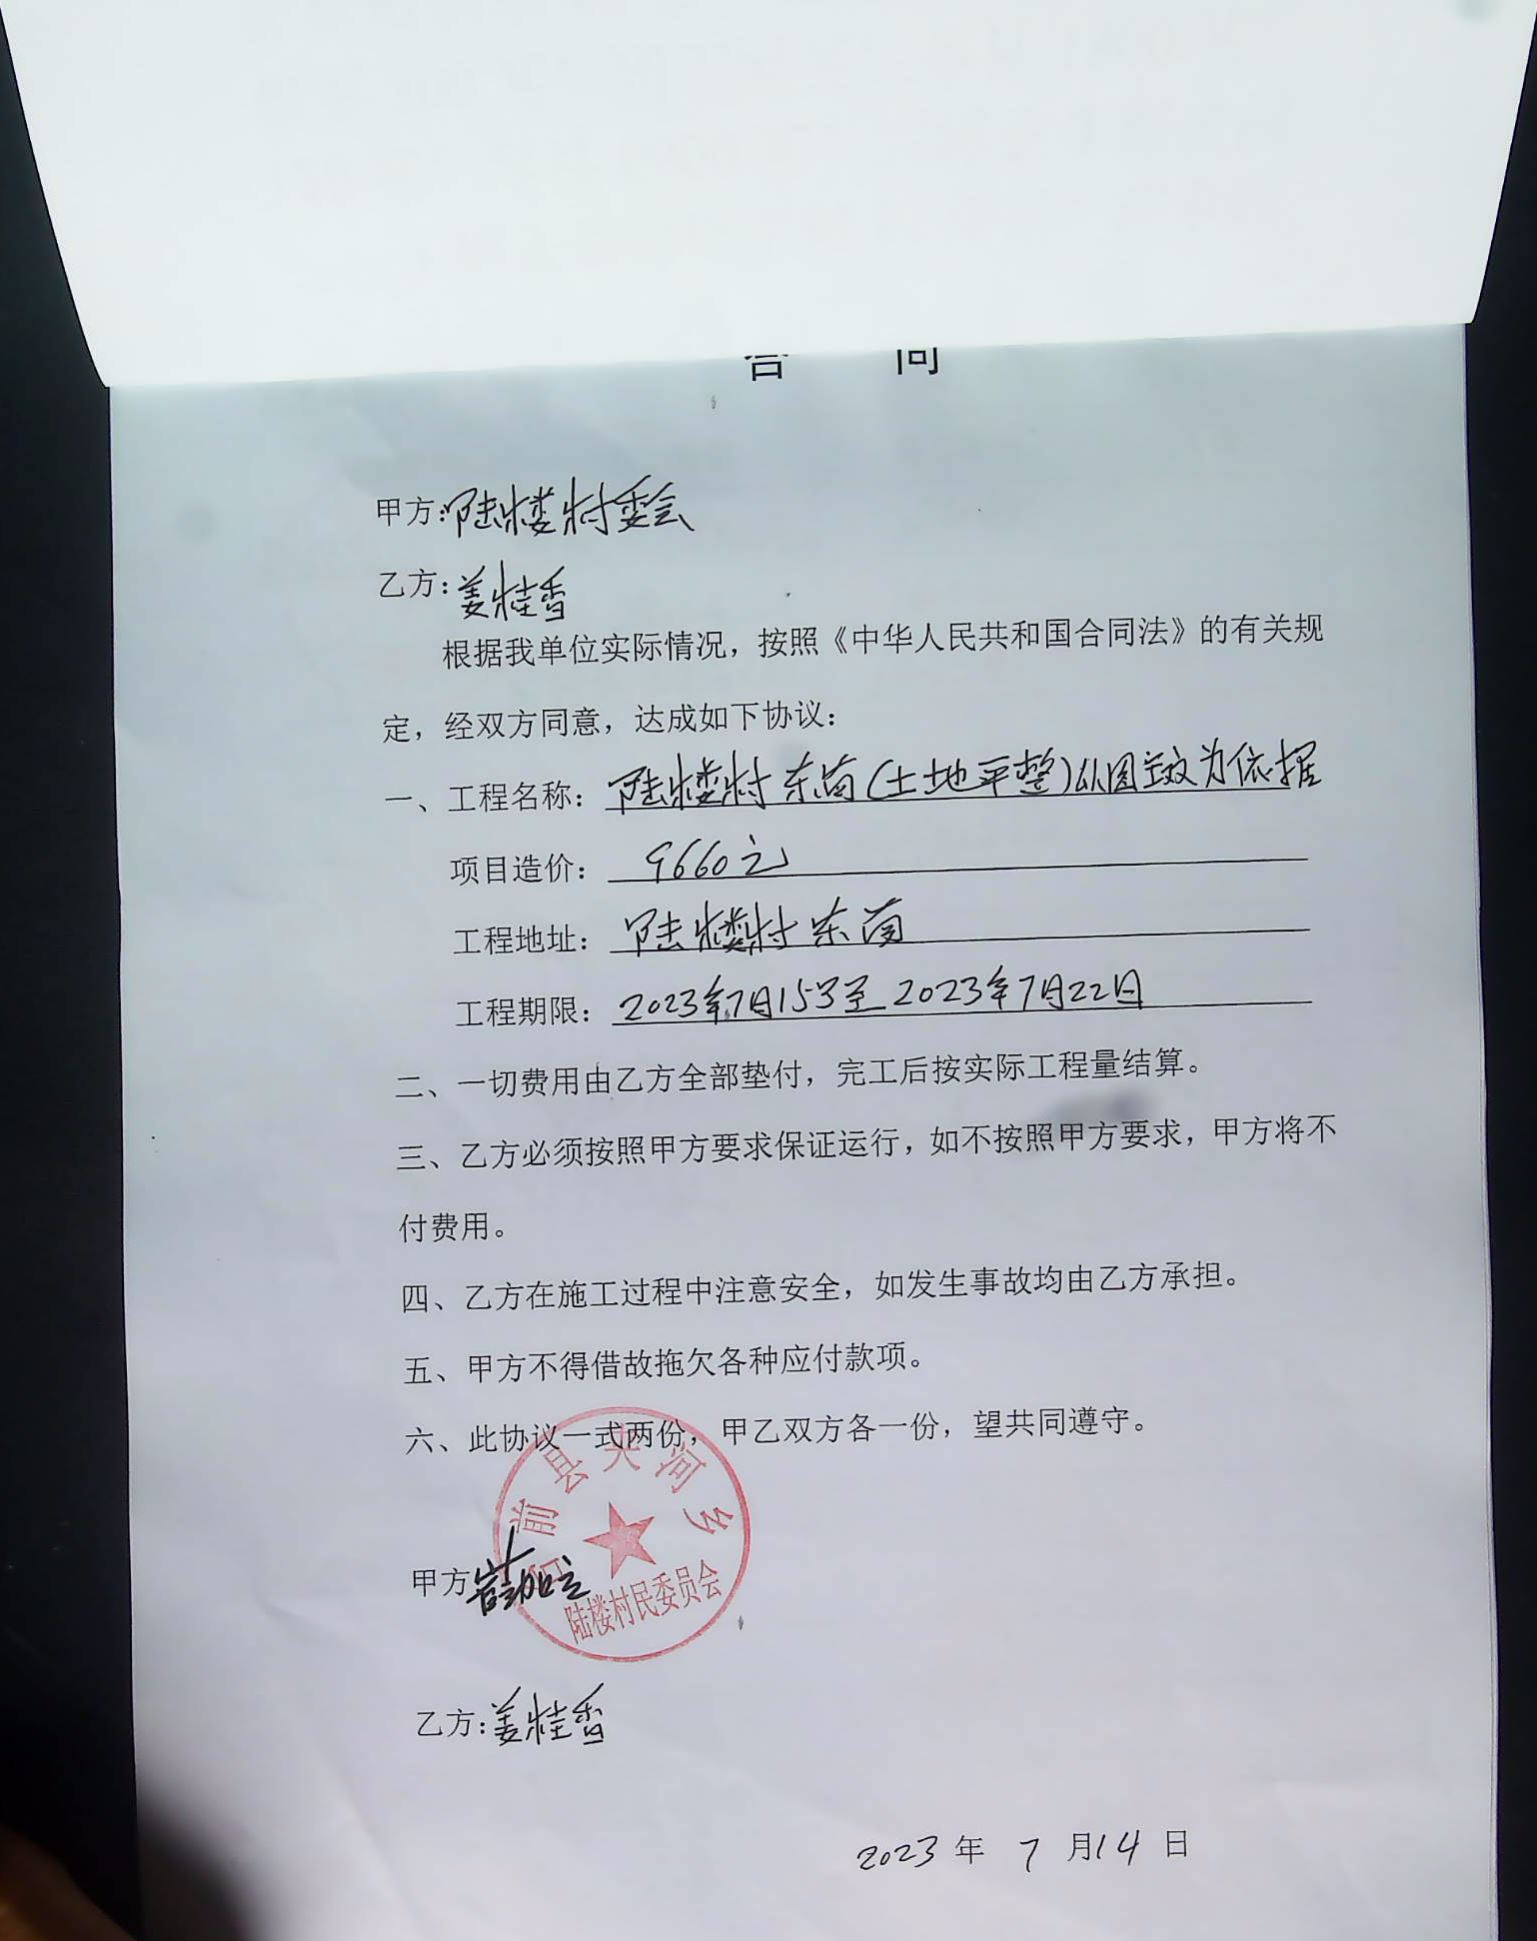 合 同
甲方:陆楼村委会
乙方:姜桂香
根据我单位实际情况，按照《中华人民共和国合同法》的有关规
定，经双方同意，达成如下协议：
一、工程名称：陆楼村东南(土地平整)以图为依据
项目造价：9660元
工程地址：陆楼村东南
工程期限：2023年7月15号至2023年7月22日
二、一切费用由乙方全部垫付，完工后按实际工程量结算。
三、乙方必须按照甲方要求保证运行，如不按照甲方要求，甲方将不
付费用。
四、乙方在施工过程中注意安全，如发生事故均由乙方承担。
五、甲方不得借故拖欠各种应付款项。
六、此协议一式两份，甲乙双方各一份，望共同遵守。
前县夹河乡
陆楼村民委员会
甲方
乙方:姜桂香
2023年7月14日